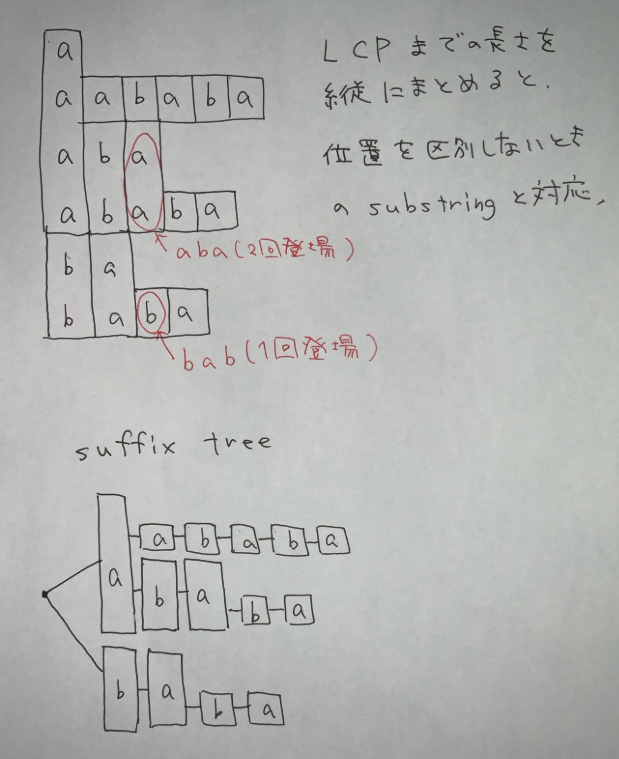 a
a a b a b a
a b a
a b a b a
b a
b a b a
LCPまでの長さを
縦にまとめると、
位置を区別しないとき
の substringと対応、
aba(2回登場)
bab(1回登場)
suffix tree
a a b a b a
b a b a
b a b a